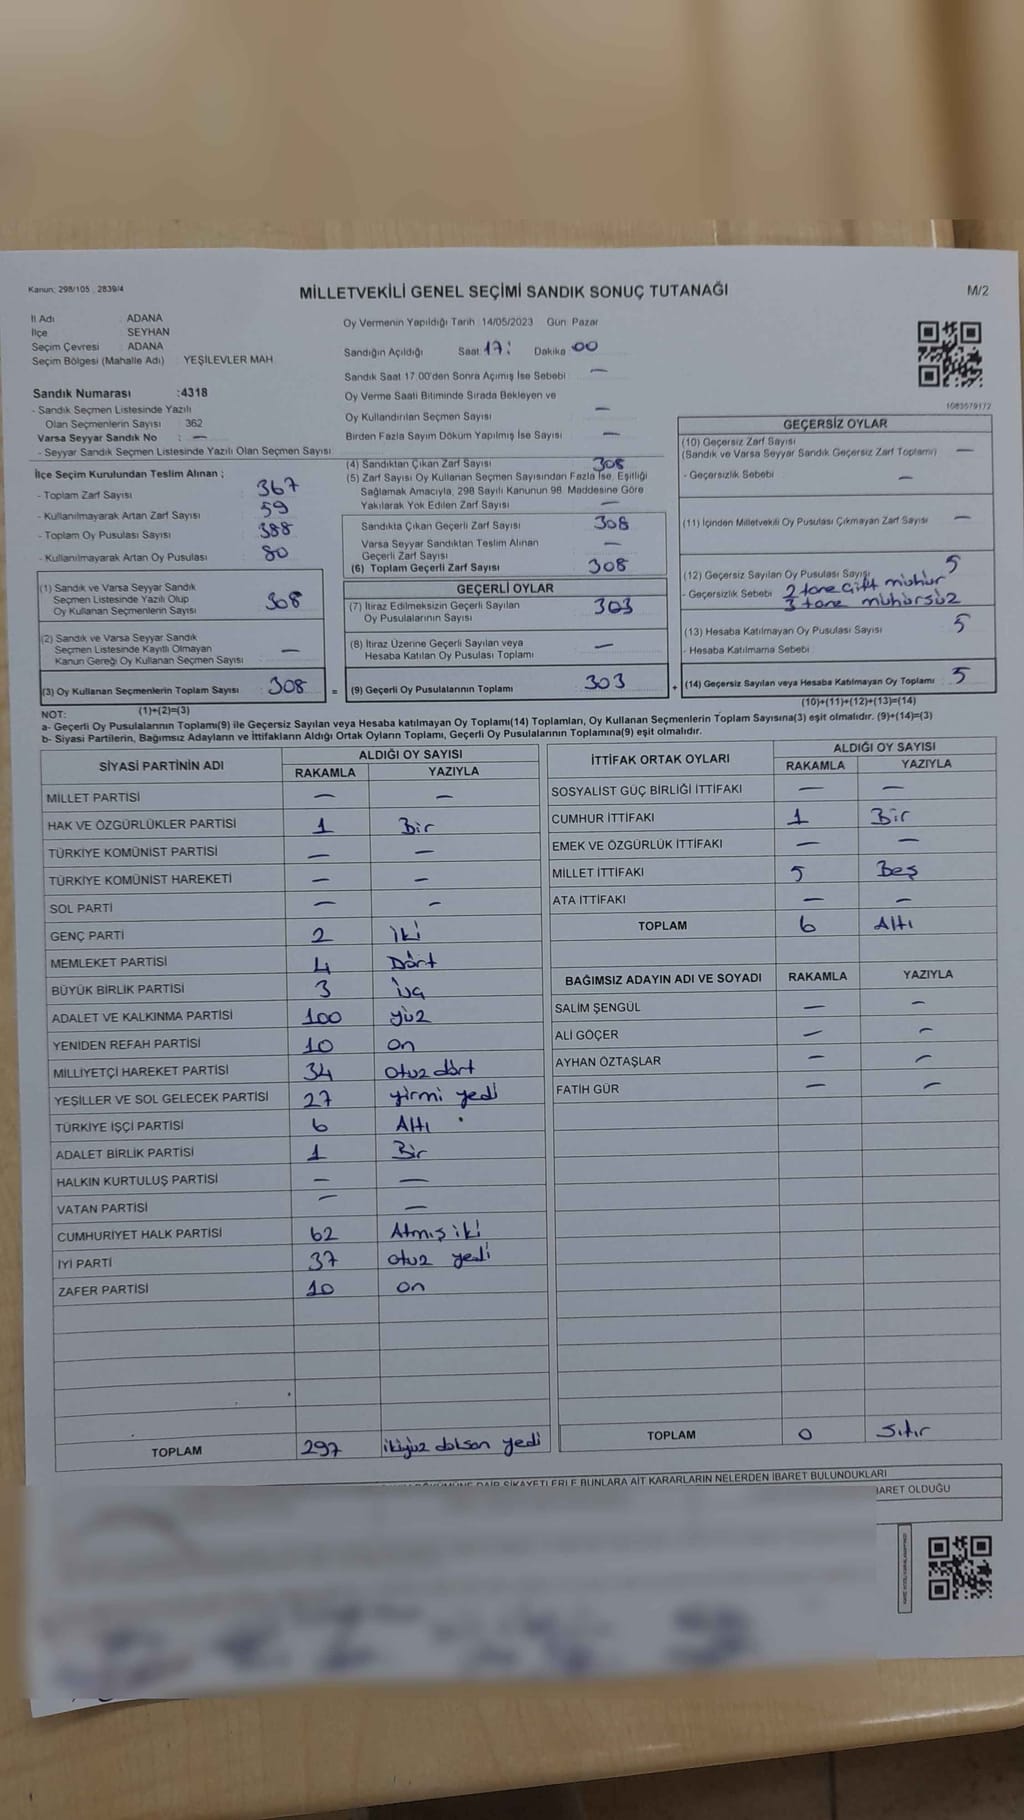 Kanun: 298/105 , 2839/4
MİLLETVEKİLİ GENEL SEÇİMİ SANDIK SONUÇ TUTANAĞI
M/2
İl Adı : ADANA
İlçe : SEYHAN
Seçim Çevresi : ADANA
Seçim Bölgesi (Mahalle Adı) : YEŞİLEVLER MAH.
Oy Vermenin Yapıldığı Tarih : 14/05/2023 Gün: Pazar
Sandığın Açıldığı Saat 17: Dakika 00
Sandık Saat 17:00'den Sonra Açımış İse Sebebi : —
Oy Verme Saati Bitiminde Sırada Bekleyen ve
Oy Kullandırılan Seçmen Sayısı : —
Birden Fazla Sayım Döküm Yapılmış İse Sayısı : —
1083579172
Sandık Numarası :4318
- Sandık Seçmen Listesinde Yazılı
Olan Seçmenlerin Sayısı : 362
Varsa Seyyar Sandık No : —
- Seyyar Sandık Seçmen Listesinde Yazılı Olan Seçmen Sayısı :
İlçe Seçim Kurulundan Teslim Alınan ;
- Toplam Zarf Sayısı : 367
- Kullanılmayarak Artan Zarf Sayısı : 59
- Toplam Oy Pusulası Sayısı : 388
- Kullanılmayarak Artan Oy Pusulası : 80
(1) Sandık ve Varsa Seyyar Sandık
Seçmen Listesinde Yazılı Olup
Oy Kullanan Seçmenlerin Sayısı : 308
(2) Sandık ve Varsa Seyyar Sandık
Seçmen Listesinde Kayıtlı Olmayan
Kanun Gereği Oy Kullanan Seçmen Sayısı : —
(3) Oy Kullanan Seçmenlerin Toplam Sayısı : 308
(1)+(2)=(3)
(4) Sandıktan Çıkan Zarf Sayısı : 308
(5) Zarf Sayısı Oy Kullanan Seçmen Sayısından Fazla İse, Eşitliği
Sağlamak Amacıyla, 298 Sayılı Kanunun 98. Maddesine Göre
Yakılarak Yok Edilen Zarf Sayısı : —
Sandıkta Çıkan Geçerli Zarf Sayısı : 308
Varsa Seyyar Sandıktan Teslim Alınan
Geçerli Zarf Sayısı : —
(6) Toplam Geçerli Zarf Sayısı : 308
GEÇERLİ OYLAR
(7) İtiraz Edilmeksizin Geçerli Sayılan
Oy Pusulalarının Sayısı : 303
(8) İtiraz Üzerine Geçerli Sayılan veya
Hesaba Katılan Oy Pusulası Toplamı : —
= (9) Geçerli Oy Pusulalarının Toplamı : 303
GEÇERSİZ OYLAR
(10) Geçersiz Zarf Sayısı : —
(Sandık ve Varsa Seyyar Sandık Geçersiz Zarf Toplamı)
- Geçersizlik Sebebi : —
(11) İçinden Milletvekili Oy Pusulası Çıkmayan Zarf Sayısı : —
(12) Geçersiz Sayılan Oy Pusulası Sayısı : 5
- Geçersizlik Sebebi : 2 tane çift mühür
3 tane mühürsüz
(13) Hesaba Katılmayan Oy Pusulası Sayısı : 5
- Hesaba Katılmama Sebebi :
+ (14) Geçersiz Sayılan veya Hesaba Katılmayan Oy Toplamı : 5
(10)+(11)+(12)+(13)=(14)
NOT:
a- Geçerli Oy Pusulalarının Toplamı(9) ile Geçersiz Sayılan veya Hesaba katılmayan Oy Toplamı(14) Toplamları, Oy Kullanan Seçmenlerin Toplam Sayısına(3) eşit olmalıdır. (9)+(14)=(3)
b- Siyasi Partilerin, Bağımsız Adayların ve İttifakların Aldığı Ortak Oyların Toplamı, Geçerli Oy Pusulalarının Toplamına(9) eşit olmalıdır.
SİYASİ PARTİNİN ADI ALDIĞI OY SAYISI
RAKAMLA YAZIYLA
MİLLET PARTİSİ — —
HAK VE ÖZGÜRLÜKLER PARTİSİ 1 Bir
TÜRKİYE KOMÜNİST PARTİSİ — —
TÜRKİYE KOMÜNİST HAREKETİ — —
SOL PARTİ — —
GENÇ PARTİ 2 iki
MEMLEKET PARTİSİ 4 Dört
BÜYÜK BİRLİK PARTİSİ 3 üç
ADALET VE KALKINMA PARTİSİ 100 yüz
YENİDEN REFAH PARTİSİ 10 on
MİLLİYETÇİ HAREKET PARTİSİ 34 otuz dört
YEŞİLLER VE SOL GELECEK PARTİSİ 27 yirmi yedi
TÜRKİYE İŞÇİ PARTİSİ 6 Altı
ADALET BİRLİK PARTİSİ 1 Bir
HALKIN KURTULUŞ PARTİSİ — —
VATAN PARTİSİ — —
CUMHURİYET HALK PARTİSİ 62 Atmış iki
İYİ PARTİ 37 otuz yedi
ZAFER PARTİSİ 10 on
TOPLAM 297 ikiyüz doksan yedi
İTTİFAK ORTAK OYLARI ALDIĞI OY SAYISI
RAKAMLA YAZIYLA
SOSYALİST GÜÇ BİRLİĞİ İTTİFAKI — —
CUMHUR İTTİFAKI 1 Bir
EMEK VE ÖZGÜRLÜK İTTİFAKI — —
MİLLET İTTİFAKI 5 Beş
ATA İTTİFAKI — —
TOPLAM 6 Altı
BAĞIMSIZ ADAYIN ADI VE SOYADI RAKAMLA YAZIYLA
SALİM ŞENGÜL — —
ALİ GÖÇER — —
AYHAN ÖZTAŞLAR — —
FATİH GÜR — —
TOPLAM 0 Sıfır
DAİR ŞİKAYETLERLE BUNLARA AİT KARARLARIN NELERDEN İBARET BULUNDUKLARI
İBARET OLDUĞU